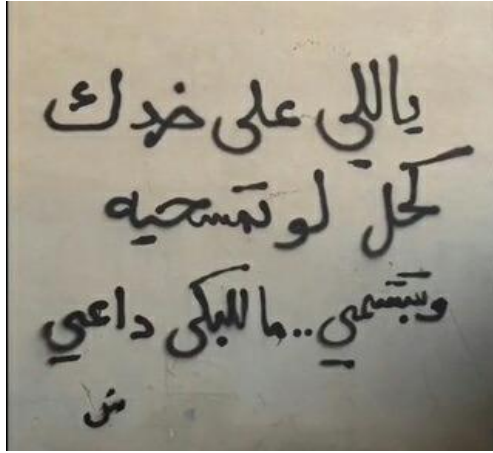 ياللي على خدك
كحل لو تمسحيه
وتبتسمي..ما للبكى داعي
ش